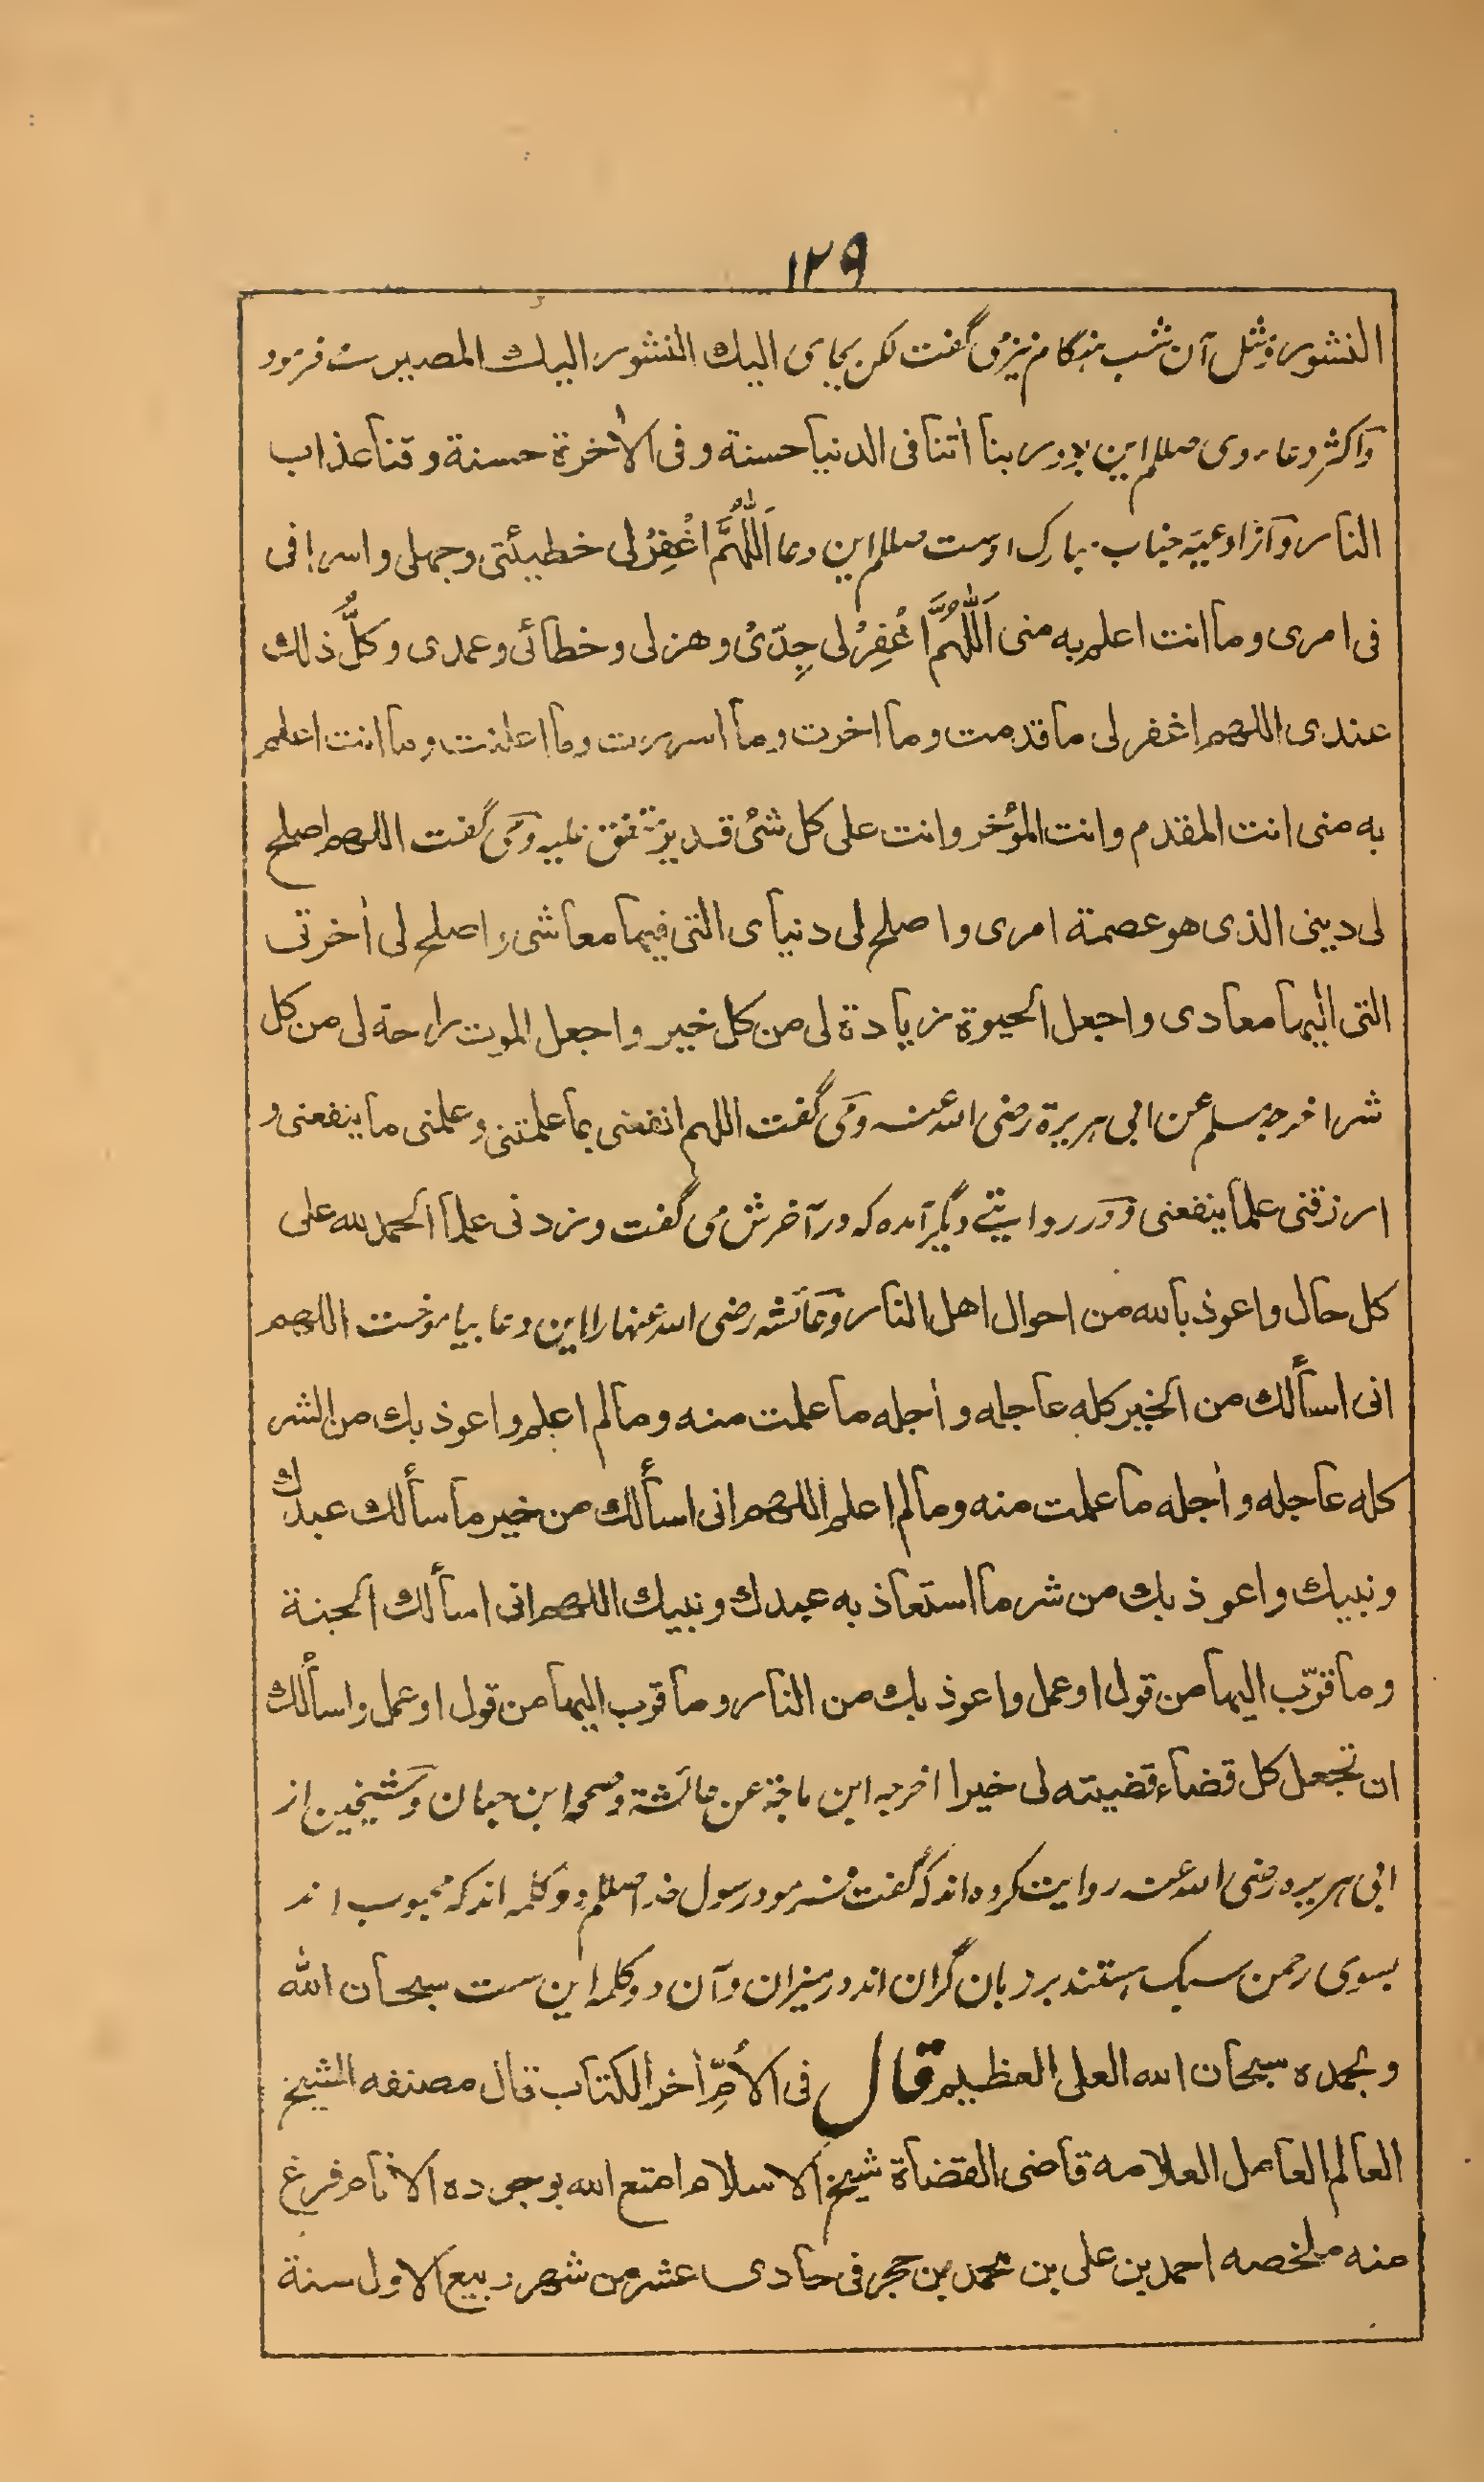 ۱۲۹
النشور ومثل آن شب هنگام نیز می گفت لکن بجای الیك النشور الیك المصیر ست فرمود
و اکثر دعاء وی صللم این بود ربنا اٰتنا فی الدنیا حسنة وفی الاٰخرة حسنة وقنا عذاب
النار و از ادعیه جناب مبارک اوست صللم این دعا اَللّٰهُمَّ اغْفِرْلی خطیئتی وجهلی واسرافی
فی امری وما انت اعلم به منی اَللّٰهُمَّ اغْفِرْلی جِدّیْ وهزلی وخطائی وعمدی وکلُّ ذلك
عندی اللهم اغفر لی ما قدمت وما اخرت وما اسررت وما اعلنت وما انت اعلم
به منی انت المقدم وانت المؤخر وانت علی کل شیٔ قدیر متفق علیه و می گفت اللهم اصلح
لی دینی الذی هو عصمة امری واصلح لی دنیای التی فیها معاشی واصلح لی اٰخرتی
التی الیها معادی واجعل الحیوة زیادة لی من کل خیر واجعل الموت راحة لی من کل
شر اخرجه مسلم عن ابی هریرة رضی الله عنه و می گفت اللهم انفعنی بما علمتنی وعلمنی ما ینفعنی و
ارزقنی علما ینفعنی و در روایتے دیگر آمده که در آخرش می گفت وزدنی علما الحمد لله علی
کل حال واعوذ بالله من احوال اهل النار و عائشه رضی الله عنها را این دعا بیاموخت اللهم
انی اسألك من الخیر کله عاجله واٰجله ما علمت منه وما لم اعلم واعوذ بك من الشر
کله عاجله واٰجله ما علمت منه وما لم اعلم اللهم انی اسألك من خیر ما سألك عبدك
ونبیك واعوذ بك من شر ما استعاذ به عبدك ونبیك اللهم انی اسألك الجنة
وما قرّب الیها من قول او عمل واعوذ بك من النار وما قرب الیها من قول او عمل واسألك
ان تجعل کل قضاء قضیته لی خیرا اخرجه ابن ماجة عن عائشة وصححه ابن حبان و شیخین از
ابی هریره رضی الله عنه روایت کرده اند که گفت فرمود رسول خدا صللم دو کلمه اند که محبوب اند
بسوی رحمن سبک هستند بر زبان گران اند در میزان و آن دو کلمه این ست سبحان الله
وبحمده سبحان الله العلی العظیم قال فی الأمّ اٰخر الکتاب قال مصنفه الشیخ
العالم العامل العلامه قاضی القضاة شیخ الاسلام امتع الله بوجوده الانام فرغ
منه ملخصه احمد بن علی بن محمد بن حجر فی حادی عشر من شهر ربیع الاول سنة